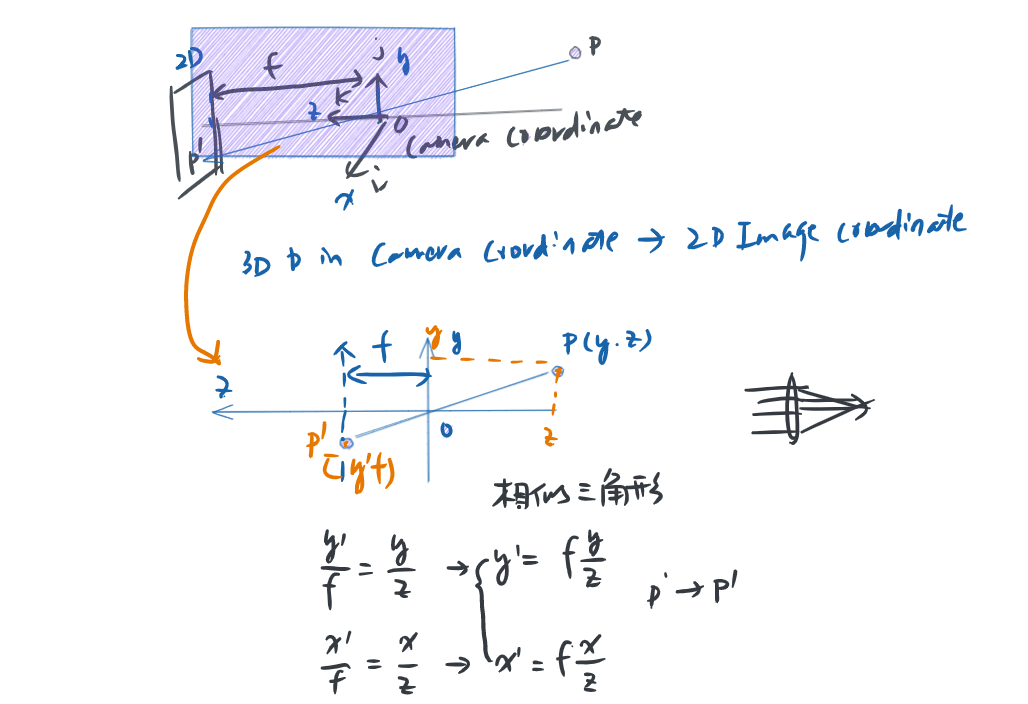 2D
f
j y
P
z k
O
Camera Coordinate
P'
x i
3D p in Camera Coordinate → 2D Image Coordinate
y y
f
P(y.z)
z
O
P'
(y'f)
z
相似三角形
y'/f = y/z → y' = f y/z
p → P'
x'/f = x/z → x' = f x/z